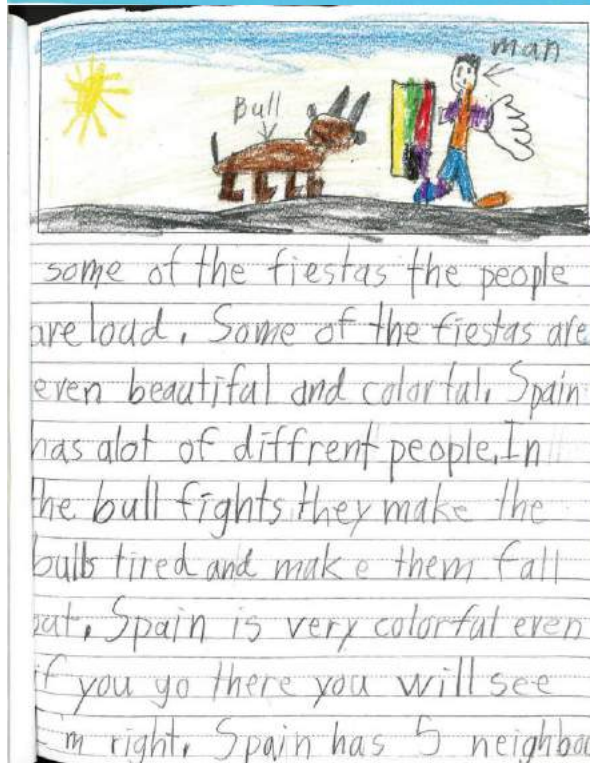 man
Bull
some of the fiestas the people
are loud. Some of the fiestas are
even beautiful and colorful. Spain
has alot of diffrent people. In
the bull fights they make the
bulls tired and make them fall
out. Spain is very colorful even
if you go there you will see
I'm right. Spain has 5 neighbo